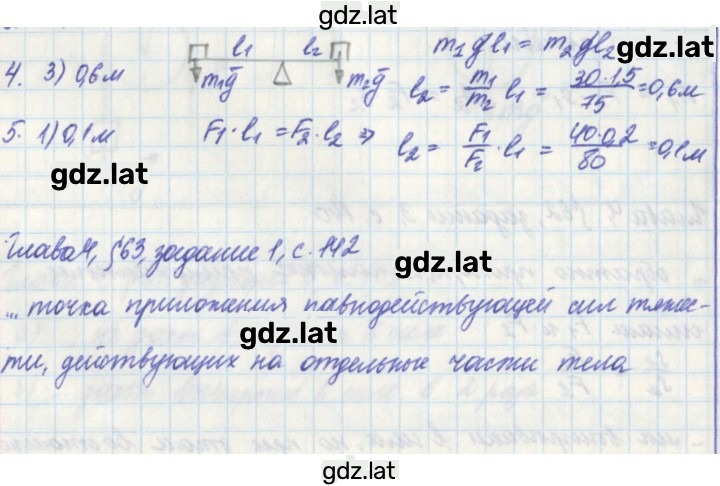 gdz.lat
l₁ l₂ m₁gl₁ = m₂gl₂
gdz.lat
4. 3) 0,6 м m₁g⃗ m₂g⃗ l₂ = m₁/m₂ l₁ = 30·1,5/75 = 0,6 м
5. 1) 0,1 м F₁·l₁ = F₂·l₂ ⇒ l₂ = F₁/F₂ · l₁ = 40·0,2/80 = 0,1 м
gdz.lat
gdz.lat
Глава 4, §63, задание 1, с. 142
gdz.lat
... точка приложения равнодействующей сил тяжес-
gdz.lat
ти, действующих на отдельные части тела
gdz.lat